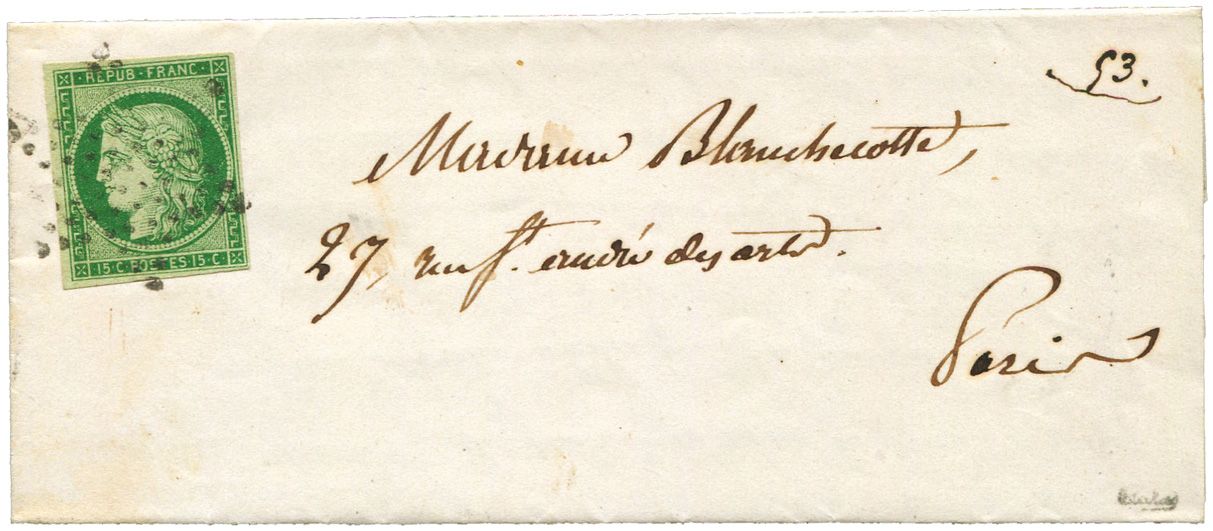 REPUB·FRANC·
15·C·POSTES·15·C·
53.
Madame Blanchecotte,
27, rue St. andré des arts.
Paris